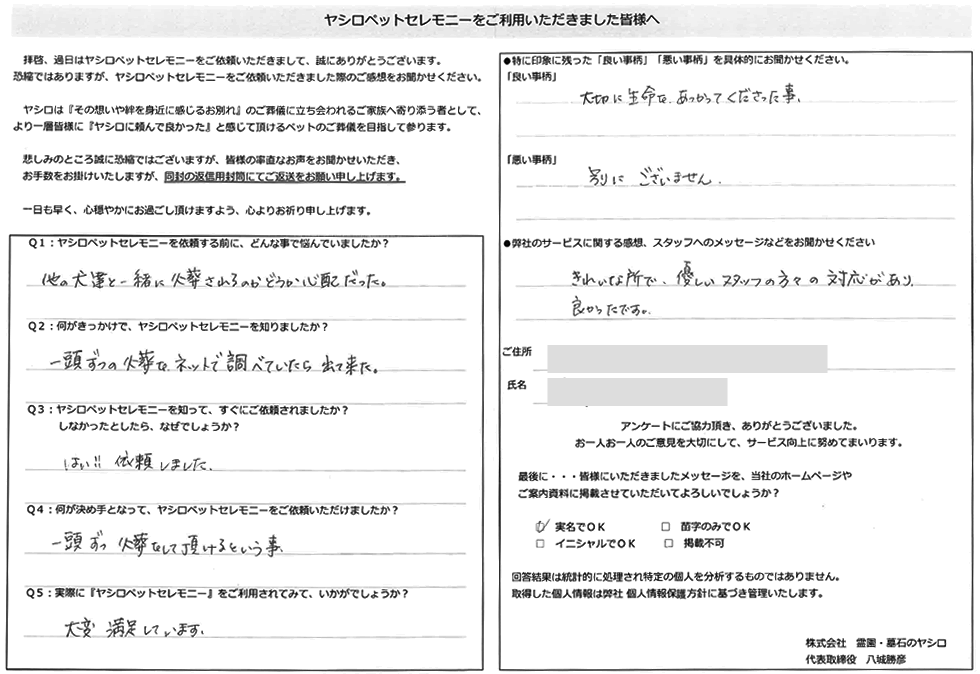 ヤシロペットセレモニーをご利用いただきました皆様へ
拝啓、過日はヤシロペットセレモニーをご依頼いただきまして、誠にありがとうございます。
恐縮ではありますが、ヤシロペットセレモニーをご依頼いただきました際のご感想をお聞かせください。
ヤシロは『その想いや絆を身近に感じるお別れ』のご葬儀に立ち会われるご家族へ寄り添う者として、
より一層皆様に『ヤシロに頼んで良かった』と感じて頂けるペットのご葬儀を目指して参ります。
悲しみのところ誠に恐縮ではございますが、皆様の率直なお声をお聞かせいただき、
お手数をお掛けいたしますが、同封の返信用封筒にてご返送をお願い申し上げます。
一日も早く、心穏やかにお過ごし頂けますよう、心よりお祈り申し上げます。
Q1：ヤシロペットセレモニーを依頼する前に、どんな事で悩んでいましたか？
他の犬達と一緒に火葬されるのかどうか心配だった。
Q2：何がきっかけで、ヤシロペットセレモニーを知りましたか？
一頭ずつの火葬を、ネットで調べていたら出て来た。
Q3：ヤシロペットセレモニーを知って、すぐにご依頼されましたか？
しなかったとしたら、なぜでしょうか？
はい!! 依頼しました。
Q4：何が決め手となって、ヤシロペットセレモニーをご依頼いただけましたか？
一頭ずつ火葬をして頂けるという事。
Q5：実際に『ヤシロペットセレモニー』をご利用されてみて、いかがでしょうか？
大変満足しています。
●特に印象に残った「良い事柄」「悪い事柄」を具体的にお聞かせください。
「良い事柄」
大切に生命を、あつかってくださった事。
「悪い事柄」
別にございません。
●弊社のサービスに関する感想、スタッフへのメッセージなどをお聞かせください
きれいな所で、優しいスタッフの方々の対応があり、
良かったです。
ご住所
氏名
アンケートにご協力頂き、ありがとうございました。
お一人お一人のご意見を大切にして、サービス向上に努めてまいります。
最後に・・・皆様にいただきましたメッセージを、当社のホームページや
ご案内資料に掲載させていただいてよろしいでしょうか？
☑ 実名でＯＫ □ 苗字のみでＯＫ
□ イニシャルでＯＫ □ 掲載不可
回答結果は統計的に処理され特定の個人を分析するものではありません。
取得した個人情報は弊社 個人情報保護方針に基づき管理いたします。
株式会社 霊園・墓石のヤシロ
代表取締役 八城勝彦